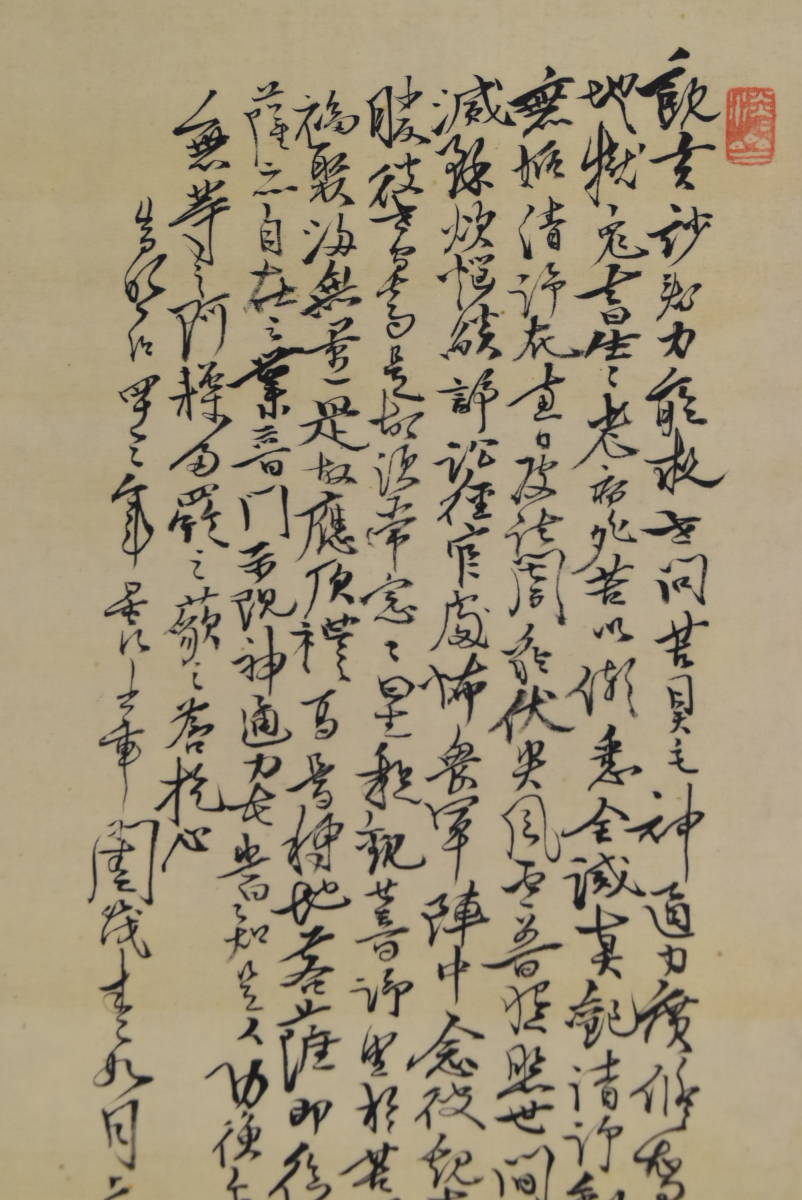 觀音妙智力能救世間苦具足神通力廣修智
地獄鬼畜生〻老病死苦以漸悉令滅真觀清淨觀
無垢清淨光慧日破諸闇能伏災風火普明照世間
滅除煩惱焰諍訟經官處怖畏軍陣中念彼觀
勝彼世間音是故須常念〻勿生疑觀世音淨聖於苦
福聚海無量是故應頂禮爾時持地菩薩即從
薩品自在之業普門示現神通力者當知是人功德不
無等〻阿耨多羅三藐三菩提心
旹明治四十三年歲次上章閹茂春如月上